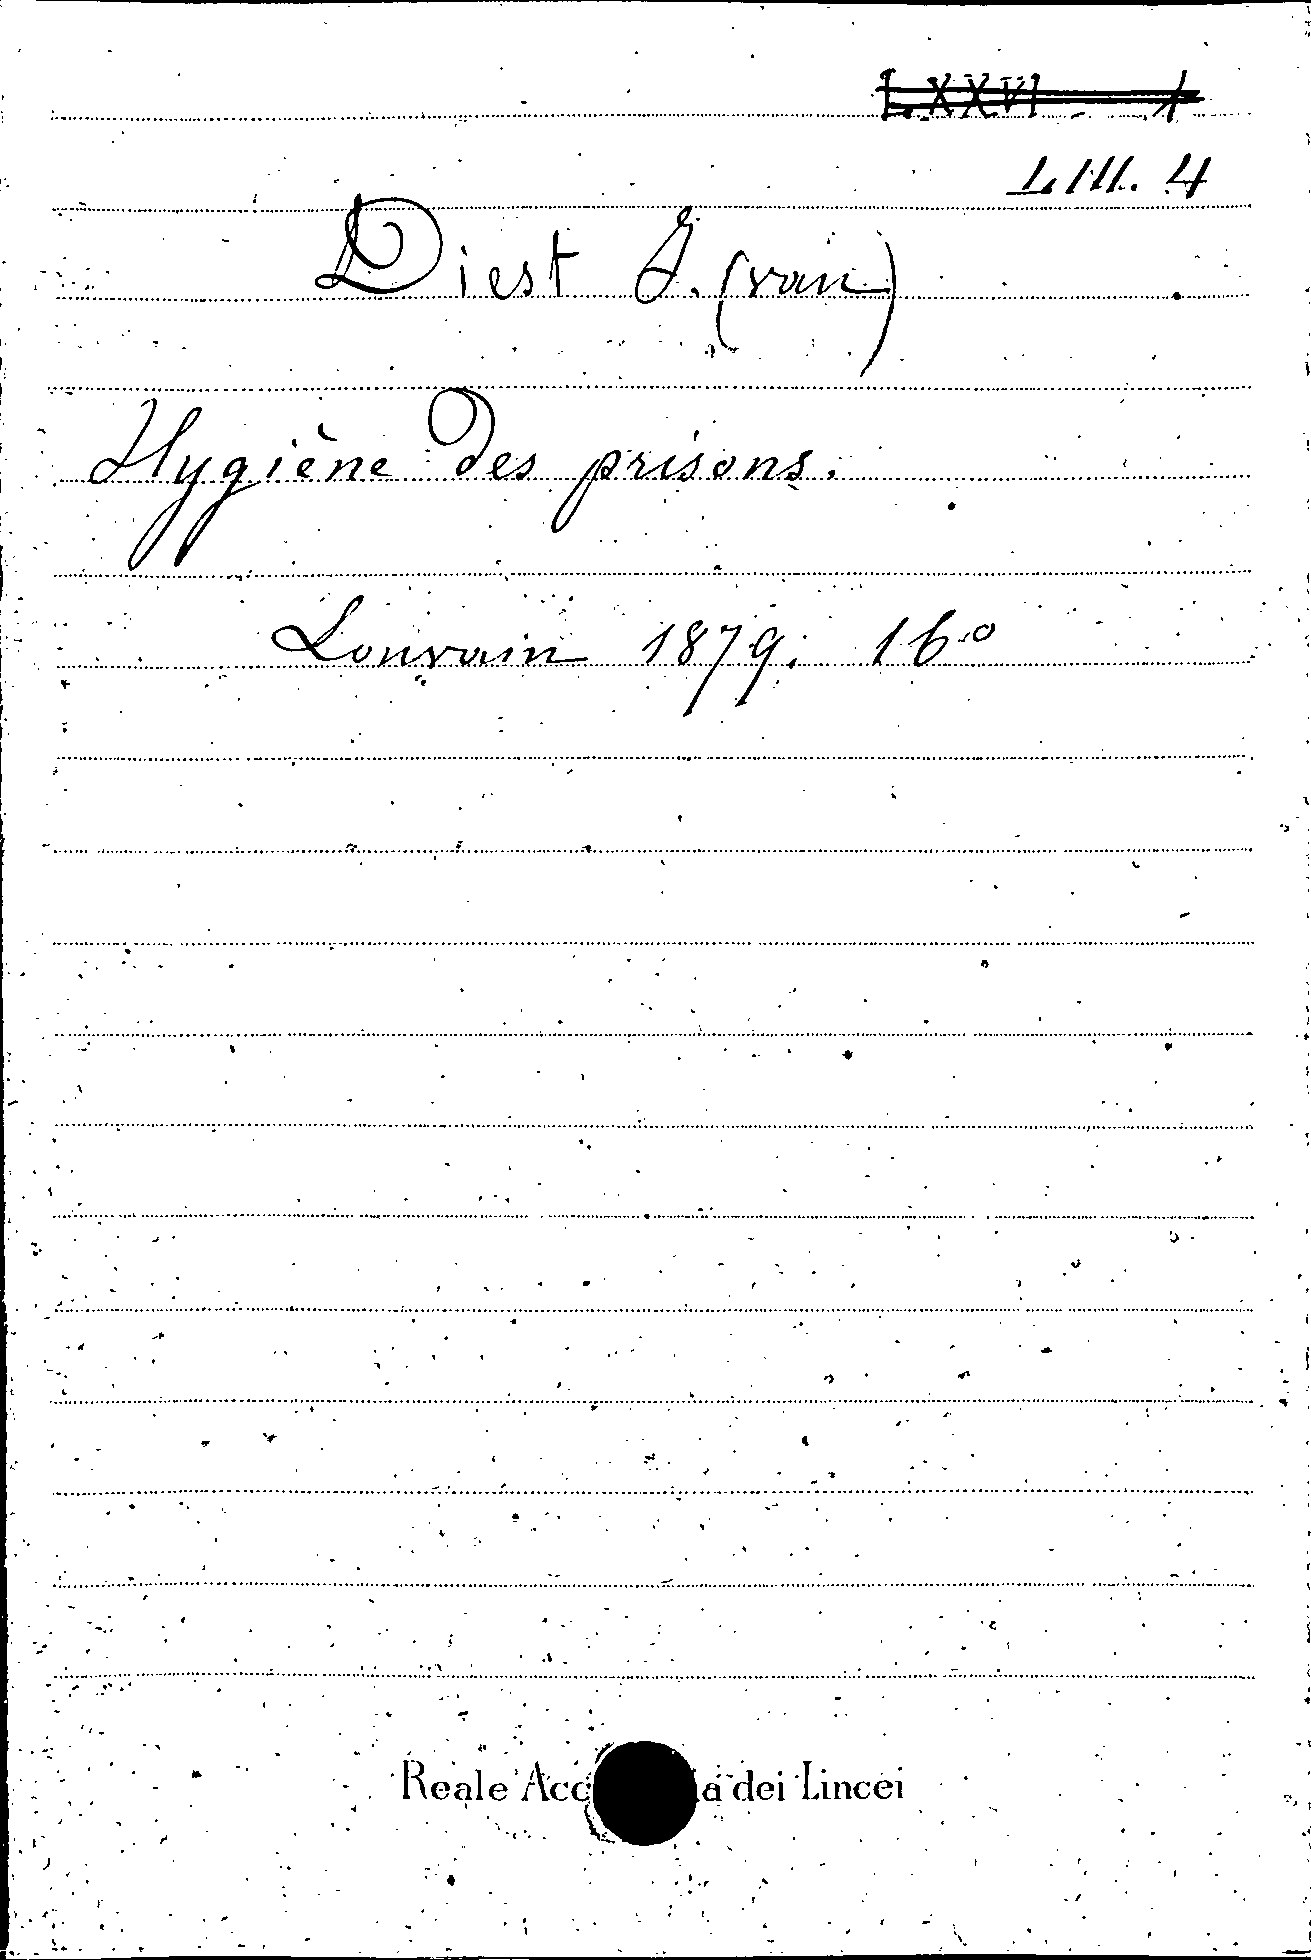 LXXVI 1
LIII. 4
Diest J. (van)
Hygiène des prisons.
Louvain 1879. 16º
Reale Acc ia dei Lincei